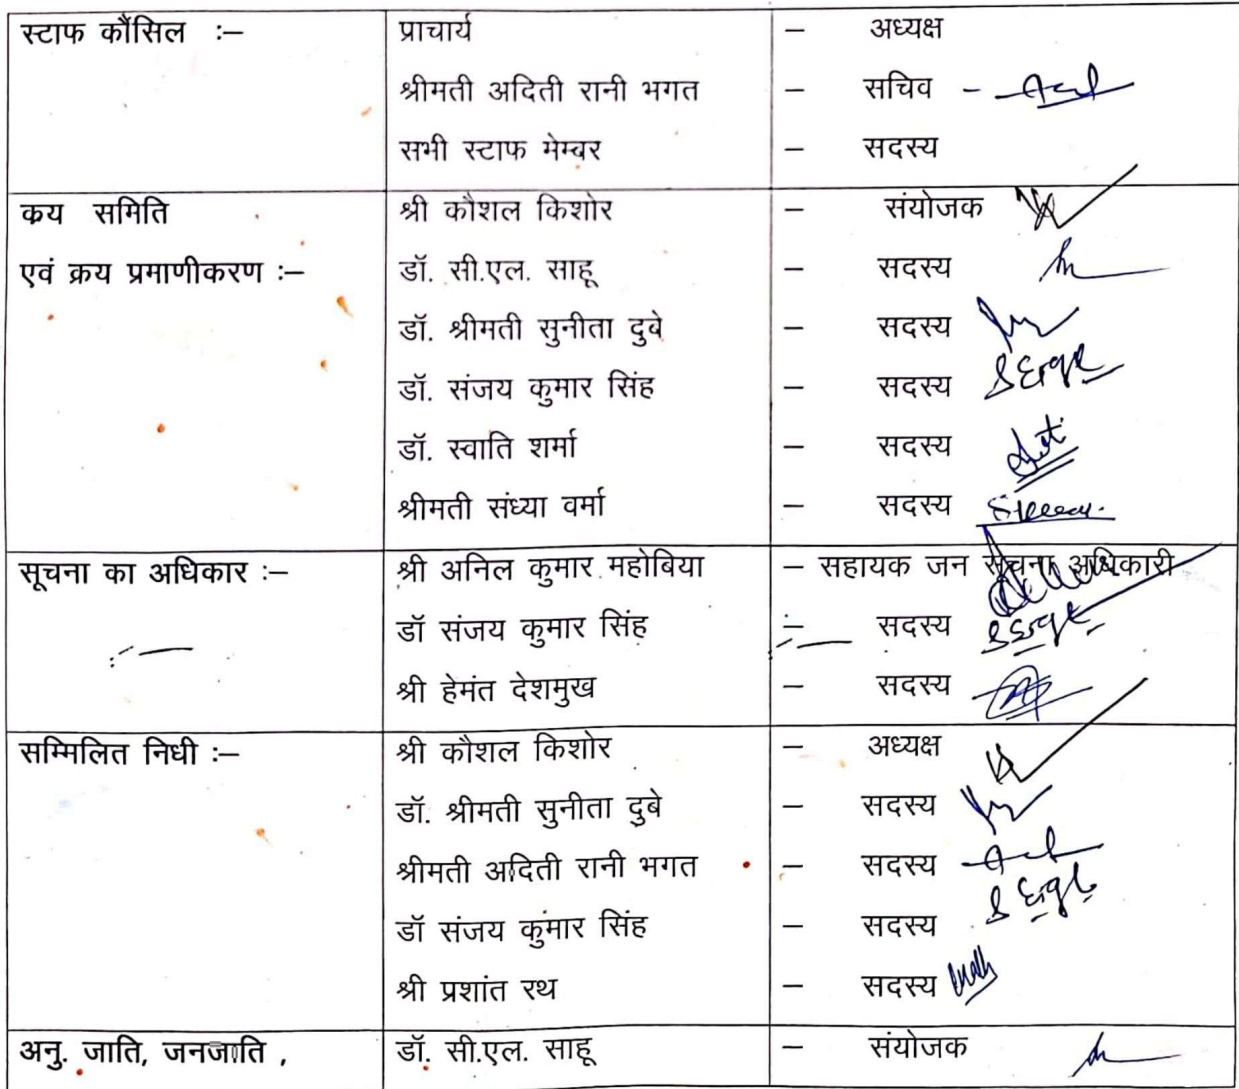 स्टाफ कौंसिल :– प्राचार्य – अध्यक्ष
श्रीमती अदिती रानी भगत – सचिव -
सभी स्टाफ मेम्बर – सदस्य
कय समिति श्री कौशल किशोर – संयोजक
एवं क्रय प्रमाणीकरण :– डॉ. सी.एल. साहू – सदस्य
डॉ. श्रीमती सुनीता दुबे – सदस्य
डॉ. संजय कुमार सिंह – सदस्य
डॉ. स्वाति शर्मा – सदस्य
श्रीमती संध्या वर्मा – सदस्य
सूचना का अधिकार :– श्री अनिल कुमार महोबिया – सहायक जन सूचना अधिकारी
डॉ संजय कुमार सिंह – सदस्य
श्री हेमंत देशमुख – सदस्य
सम्मिलित निधी :– श्री कौशल किशोर – अध्यक्ष
डॉ. श्रीमती सुनीता दुबे – सदस्य
श्रीमती अदिती रानी भगत – सदस्य
डॉ संजय कुमार सिंह – सदस्य
श्री प्रशांत रथ – सदस्य
अनु. जाति, जनजाति , डॉ. सी.एल. साहू – संयोजक